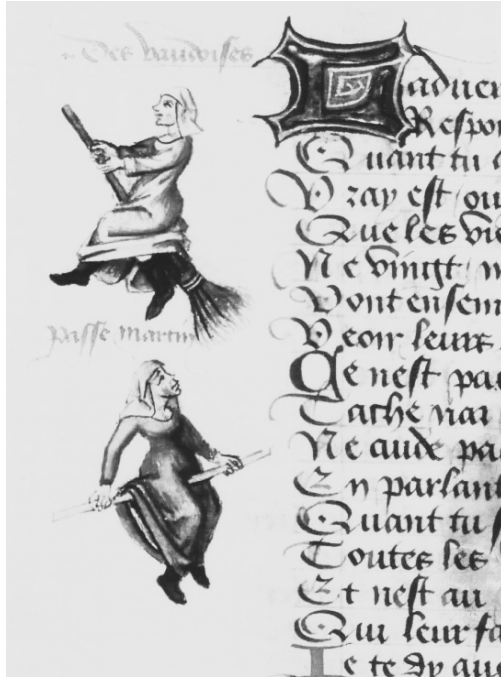 Des vaudoises
passe martin
Ladver
Respon
Quant tu
Vray est ou
Que les vie
Ne vingt
Vont ensem
Veoir leurs
Ce nest pas
Tache
Ne cuide pa
En parlant
Quant tu
Toutes les
Et nest au
Qui leur fa
Je te dy au